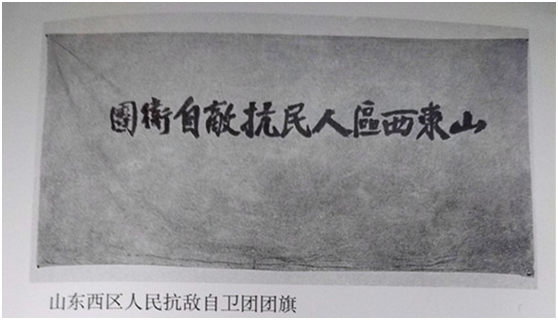 山東西區人民抗敵自衛團
山东西区人民抗敌自卫团团旗